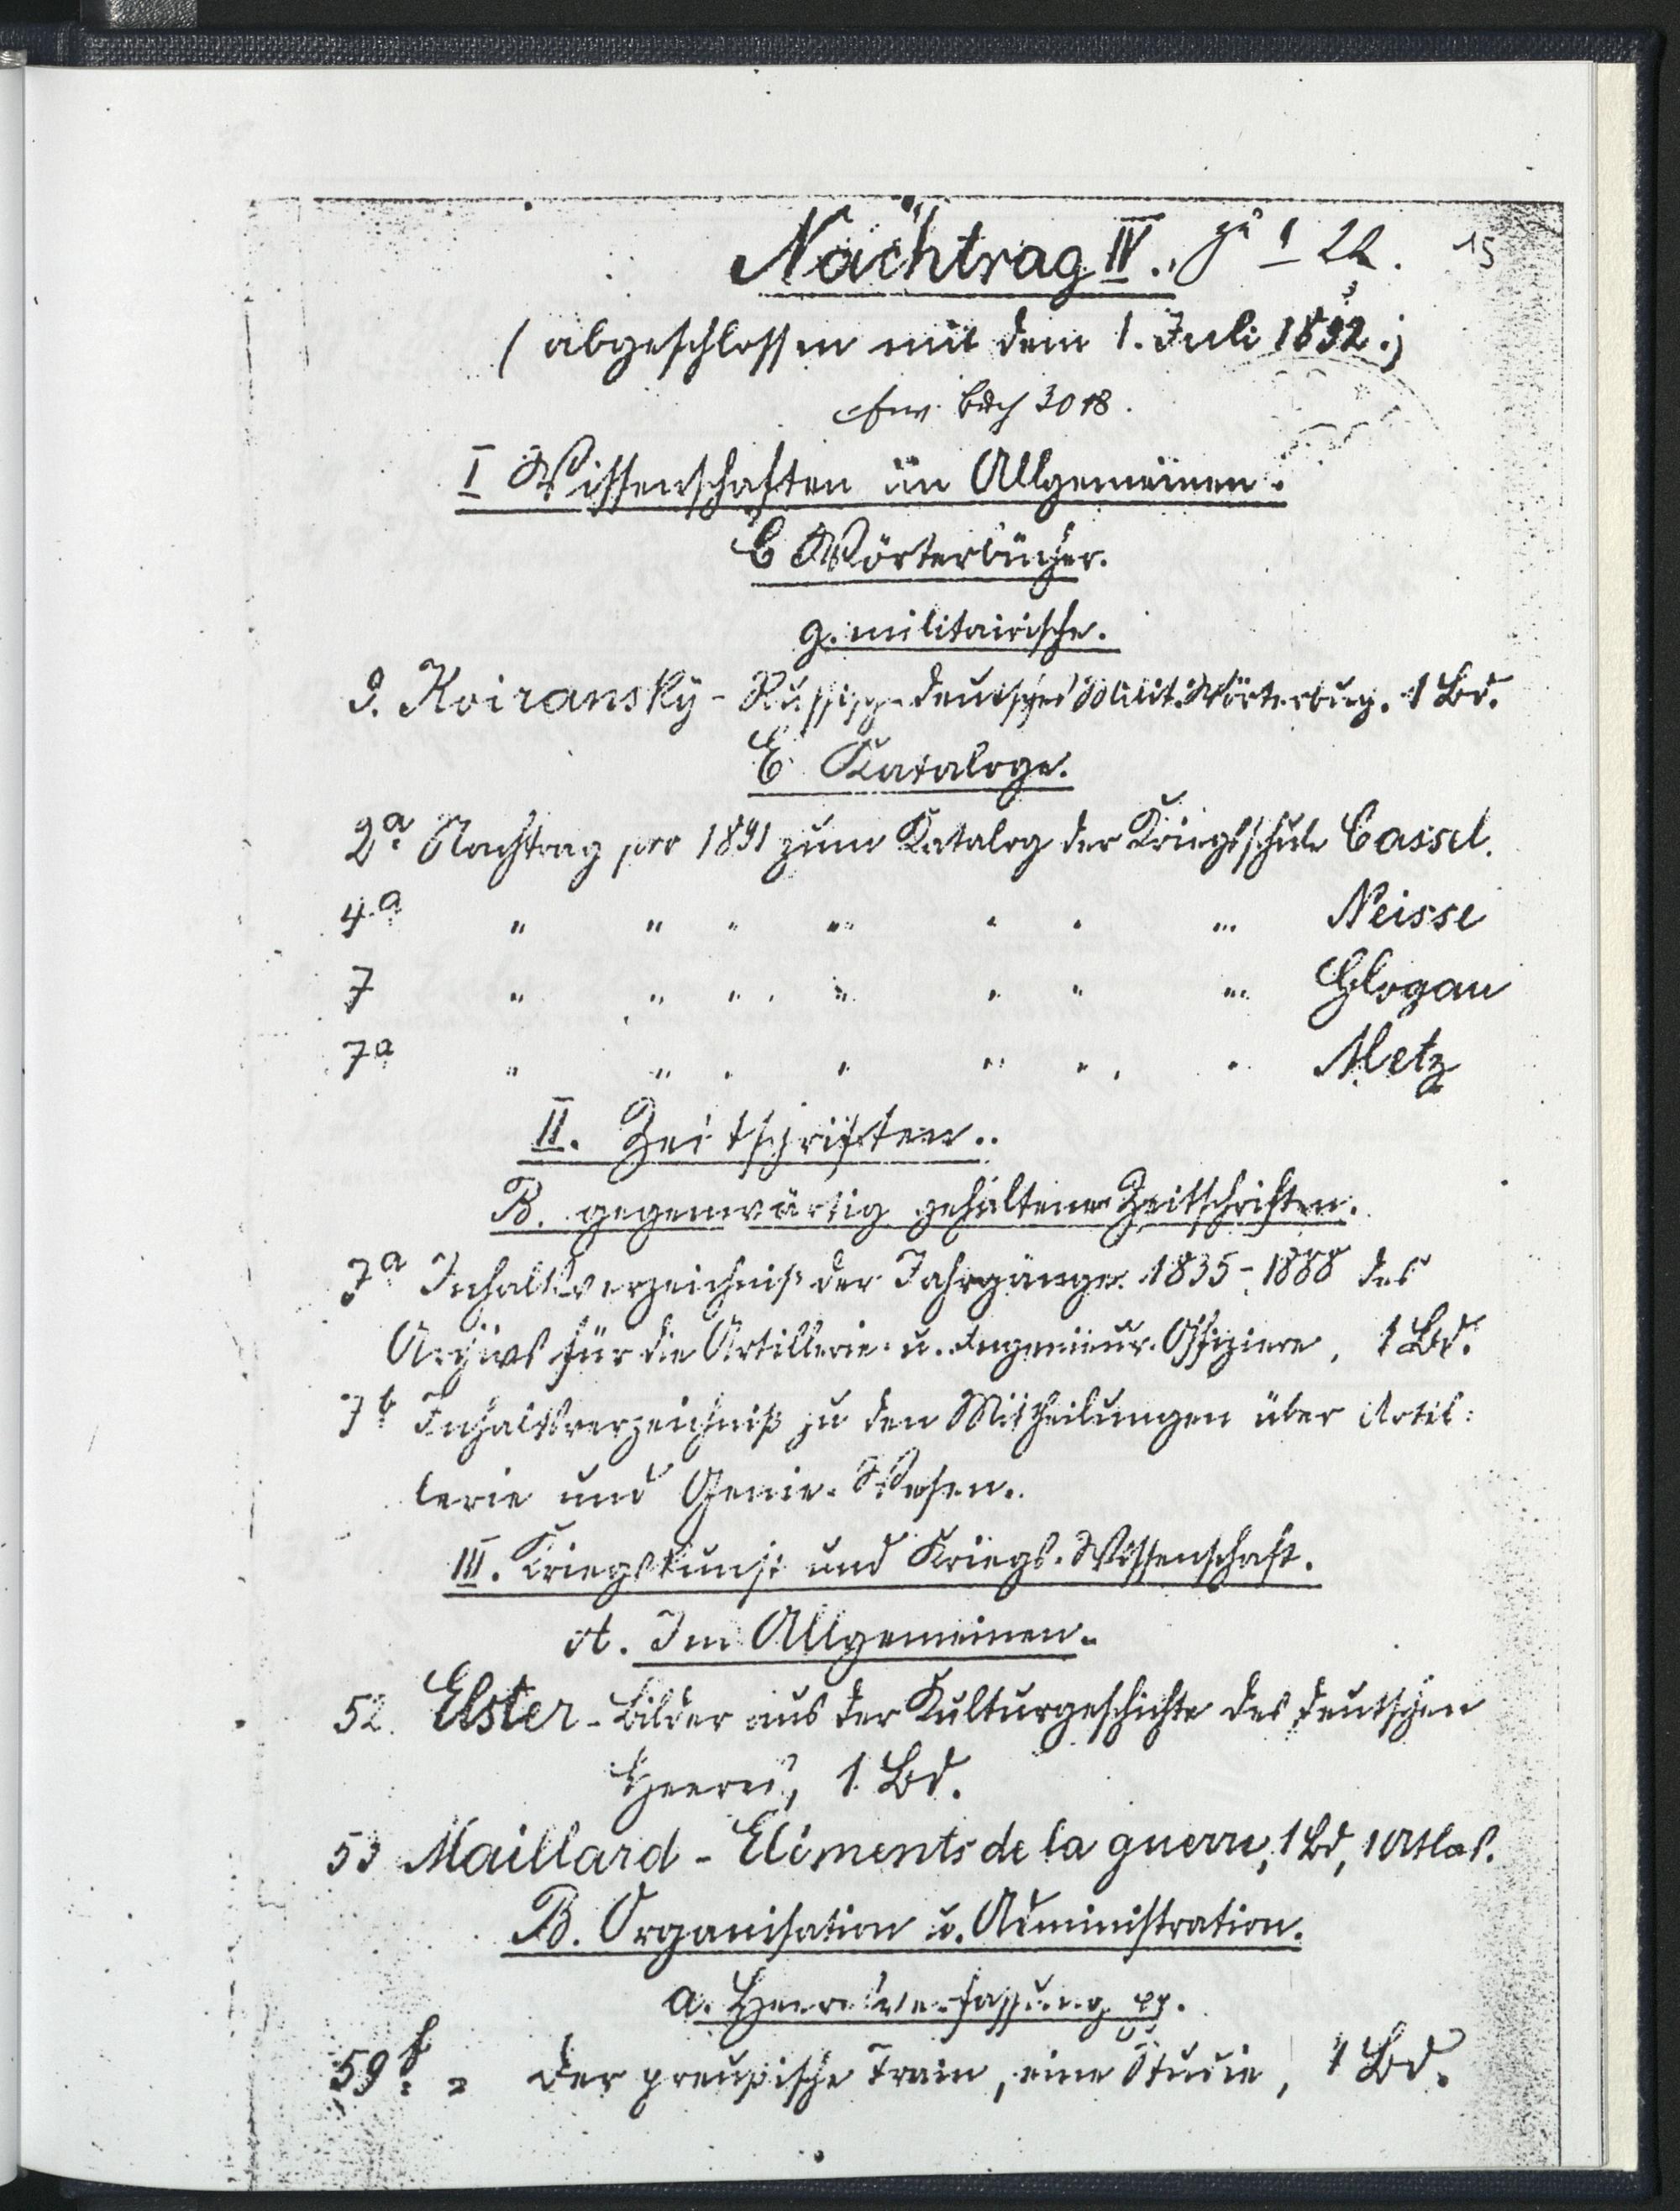 Nachtrag IV. zu I 22. 15
(abgeschlossen mit dem 1. Juli 1892.)
3018.
I Wissenschaften im Allgemeinen.
C Wörterbücher.
g. militairische.
9. Koiransky - Russisch-deutsches Milit. Wörterbuch. 1 Bd.
E Kataloge.
2a Nachtrag pro 1891 zum Katalog der Kriegsschule Cassel.
4.a " " " " " " " Neisse
7 " " " " " " " Glogau
7a " " " " " " " Metz
II. Zeitschriften.
B. gegenwärtig gehaltene Zeitschriften.
7a Inhaltsverzeichniß der Jahrgänge 1835-1888 des
Archivs für die Artillerie- u. Ingenieur-Offiziere, 1 Bd.
7b Inhaltsverzeichniß zu den Mittheilungen über Artil=
lerie und Genie-Wesen.
III. Kriegskunst und Kriegs-Wissenschaft.
A. Im Allgemeinen.
52. Elster - Bilder aus der Kulturgeschichte des deutschen
Heeres, 1 Bd.
53 Maillard - Eléments de la guerre, 1 Bd, 1 Atlas.
B. Organisation u. Administration.
a. Heeresverfassung pp.
59f. = der preußische Train, eine Studie, 1 Bd.